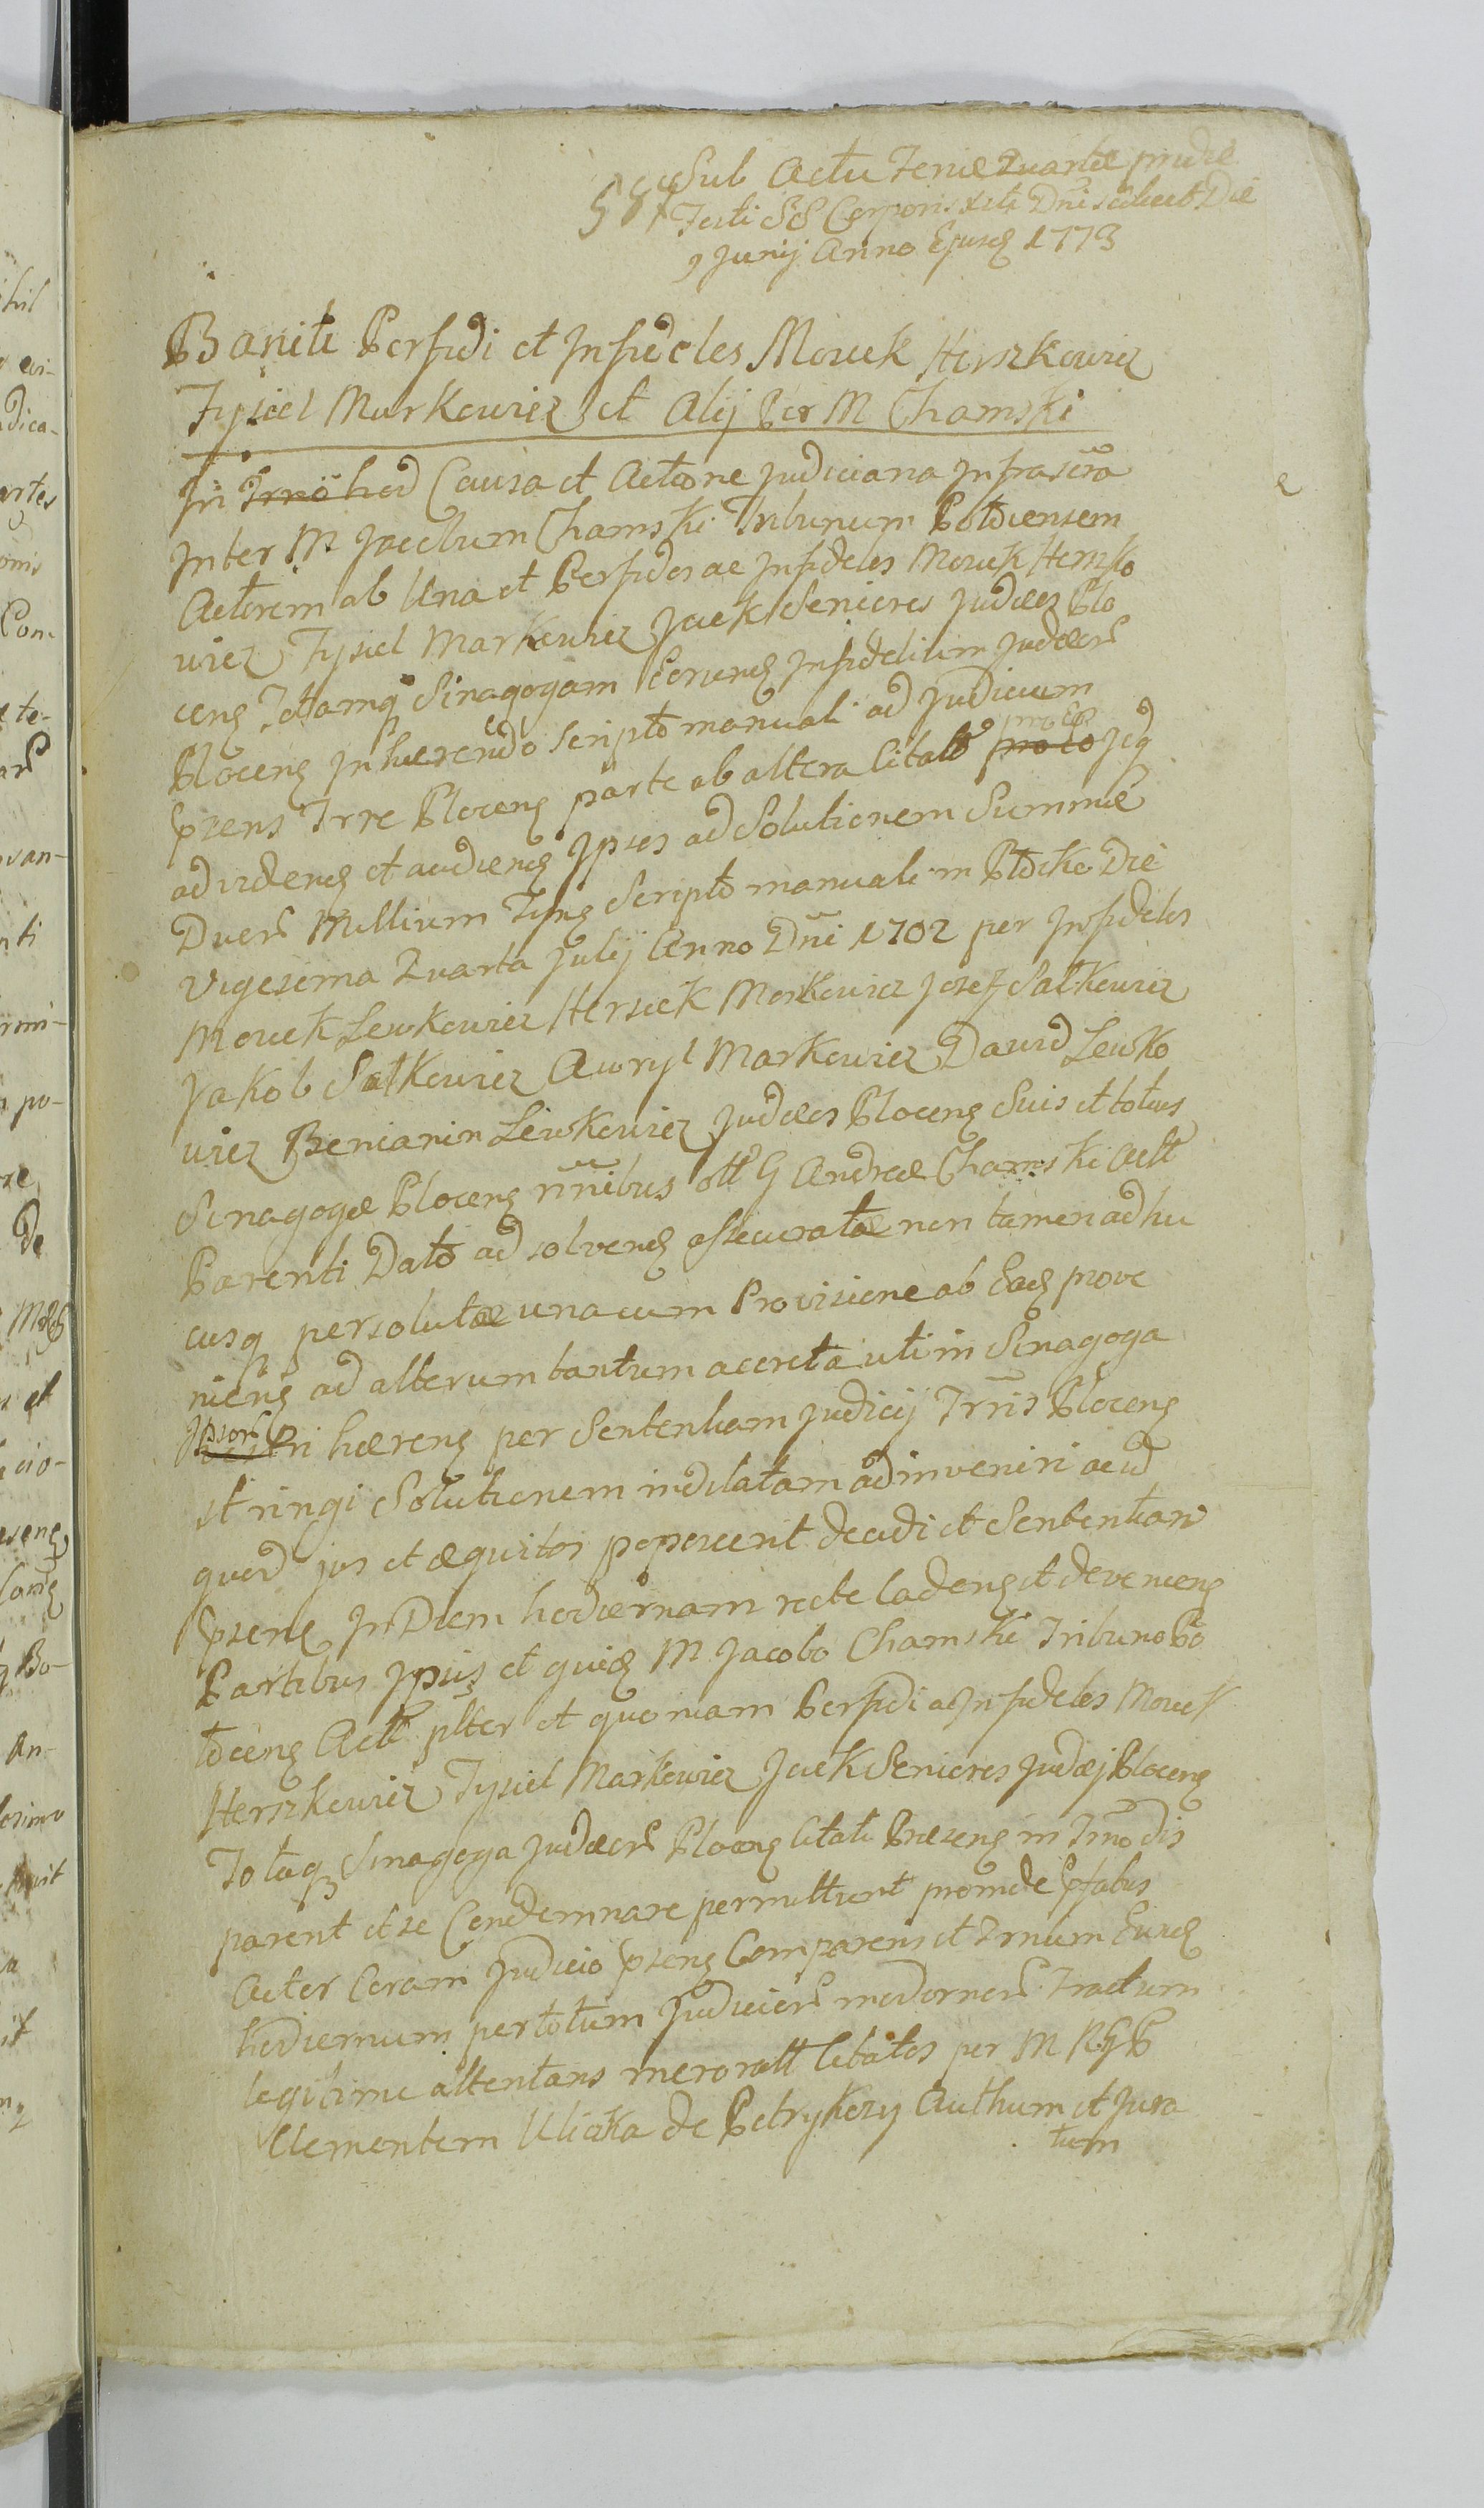 Sub Actu Feriæ Quartæ pridie
587 Festi SS Corporis Xsti Dni scilicet Die
9 Junij Anno Ejusd 1773
Baniti Perfidi et Infideles Mouek Herszkowicz
Fysiel Markowicz et Alij Per M Chamski
In Trno hod Causa et Actione judiciaria Infrascra
Inter M Jacobum Chamski Tribunum Potdcensem
Actorem ab Una et Perfidos ac Infideles Mouek Herszko
wicz Fysiel Markowicz Jcek Seniores Judæos Plo
ceng Totamq Sinagogam Eorund Infidelium Judæor
Ploceng Inhærendo Scripto manuali ad Judicium
Psens Trre Ploceng parte ab altera Citato pro eo pro Eo Jcq
ad vidend et audiend Ipsos ad Solutionem Summæ
Duor Millium Tynf Scripto manuali in Płocko Die
Vigesima Quarta Julij Anno Dni 1702 per Infideles
Mouek Lewkowicz Hersiek Morkowicz Josef Salkowicz
Jakob Salkowicz Awryl Markowicz Dawid Lewko
wicz Beniamin Lewkowicz Judæos Ploceng Suis et totius
Sinagogæ Ploceng nnibus olt G Andreæ Chamski Actt
Parenti Dato ad solvend assecuratæ non tamen adhu
cusq persolutæ unacum Provisione ab Ead prove
nieng ad alterum tantum accreta uti in Sinagoga
Ipsor hæreng per Sententiam judicij Trris Ploceng
stringi Solutionem indilatam adinveniri ac id
quod jus et æquitas poposcerit decidi et Sententiam
Pseng In Diem hodiernam recte Cadeng et deveneng
Partibus Ipsis et quid M Jacobo Chamski Tribuno Po
tdceng Actt plter et quoniam Perfidi ac Infideles Mouek
Herszkowicz Fysiel Markowicz Jcek Seniores Judæj Ploceng
Totaq Sinagoga Judæor Ploceng Citati Præseng in Trno dis
parent et se Condemnare permittunt proinde Pfatus
Actor Coram Judicio Pseng Comparens et Trnum Eund
hodiernum per totum Judicior modernor Tractum
legitime attentans meroratt Citatos per M R G P
Clementem Uliaka de Petrykozy Authum et Jura
tum